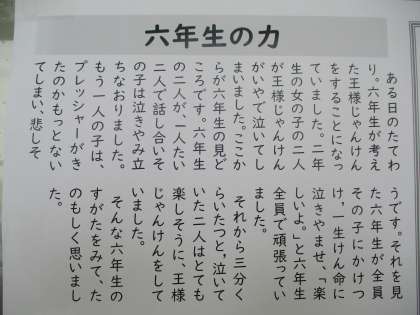 六年生の力
ある日のたてわ
り。六年生が考え
た王様じゃんけん
をすることになっ
ていました。二年
生の女の子の二人
が王様じゃんけん
がいやで泣いてし
まいました。ここか
らが六年生の見ど
ころです。六年生
の二人が、一人たい
二人で話し合いそ
の子は泣きやみ立
ちなおりました。
もう一人の子は、
プレッシャーがき
たのかもっとない
てしまい、悲しそ
うです。それを見
た六年生が全員
その子にかけつ
け、一生けん命に
泣きやませ、「楽
しいよ。」と六年生
全員で頑張ってい
ました。
それから三分く
らいたつと、泣いて
いた二人はとても
楽しそうに、王様
じゃんけんをして
いました。
そんな六年生の
すがたをみて、た
のもしく思いまし
た。